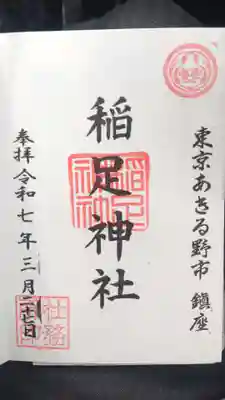 東京あきる野市 鎮座
稲足神社
奉拝 令和七年三月二十七日
稲足神社
社務所印